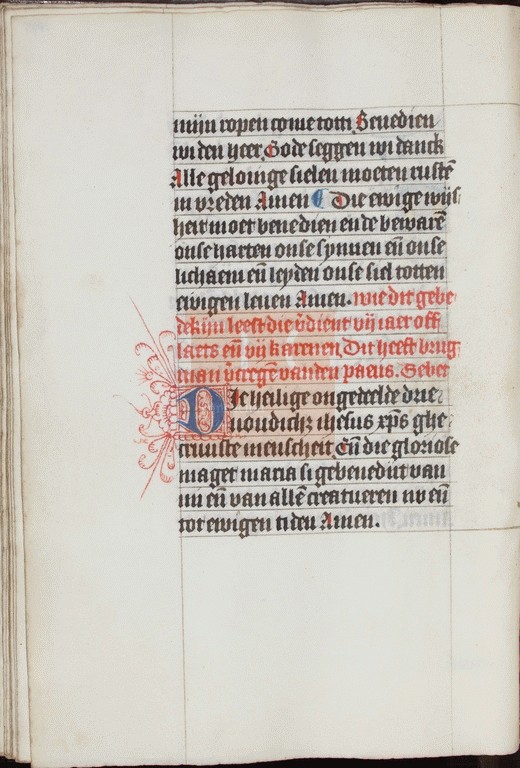 mijn ropen come totti Benedien
wi den heer Gode seggen wi danck
Alle gelouige sielen moeten rustē
in vreden Amen Die ewige wijs
heit moet benedien ende bewarē
onse harten onse synnen eñ onse
lichaem eñ leyden onse siel totten
ewigen leuen Amen. wie dit gebe
dekijn leest die v̄dient vij iaer off
laets eñ vij karenen Dit heeft brug
man v̄cregē vanden paeus. Gebet
Die heilige ongedeelde drie
uoudich₃ ihesus xp̄s ghe
cruuste menscheit Eñ die gloriose
maget maria si gebenedijt van
mi eñ van allē creatueren nv eñ
tot ewigen tiden Amen.